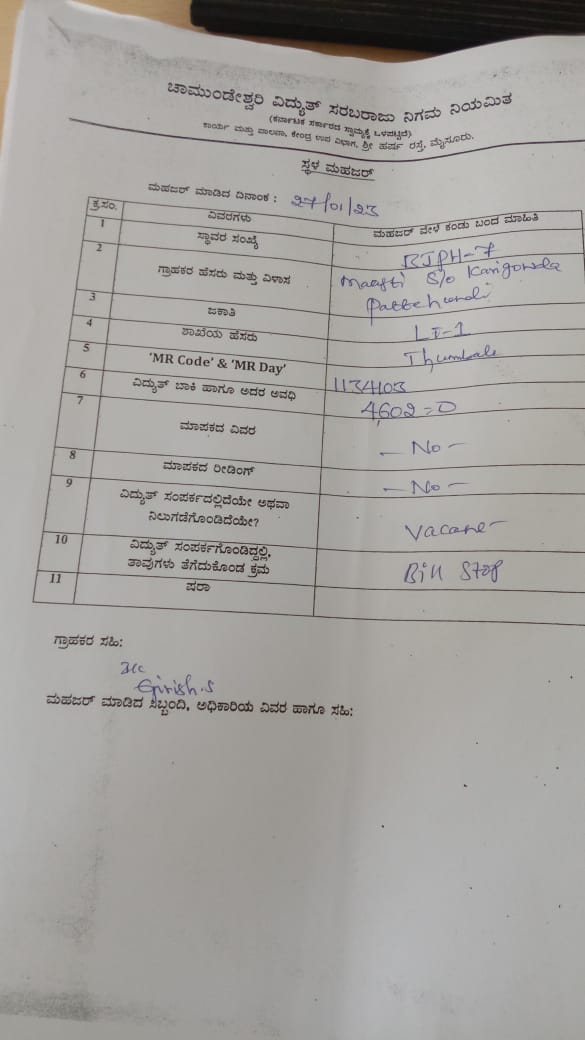 ಚಾಮುಂಡೇಶ್ವರಿ ವಿದ್ಯುತ್ ಸರಬರಾಜು ನಿಗಮ ನಿಯಮಿತ
(ಕರ್ನಾಟಕ ಸರ್ಕಾರದ ಸ್ವಾಮ್ಯಕ್ಕೆ ಒಳಪಟ್ಟಿದೆ)
ಕಾರ್ಯ ಮತ್ತು ಪಾಲನಾ, ಕೇಂದ್ರ ಉಪ ವಿಭಾಗ, ಶ್ರೀ ಹರ್ಷ ರಸ್ತೆ, ಮೈಸೂರು.
ಸ್ಥಳ ಮಹಜರ್
ಮಹಜರ್ ಮಾಡಿದ ದಿನಾಂಕ : 27/01/23
ಕ್ರ.ಸಂ. ವಿವರಗಳು ಮಹಜರ್ ವೇಳೆ ಕಂಡು ಬಂದ ಮಾಹಿತಿ
1 ಸ್ಥಾವರ ಸಂಖ್ಯೆ
2 ಗ್ರಾಹಕರ ಹೆಸರು ಮತ್ತು ವಿಳಾಸ S/o Karigowda
3 ಜಕಾತಿ LT-1
4 ಶಾಖೆಯ ಹೆಸರು
5 'MR Code' & 'MR Day' 1134103
6 ವಿದ್ಯುತ್ ಬಾಕಿ ಹಾಗೂ ಅದರ ಅವಧಿ 4602=0
7 ಮಾಪಕದ ವಿವರ - No -
8 ಮಾಪಕದ ರೀಡಿಂಗ್ - No -
9 ವಿದ್ಯುತ್ ಸಂಪರ್ಕದಲ್ಲಿದೆಯೇ ಅಥವಾ
ನಿಲುಗಡೆಗೊಂಡಿದೆಯೇ?
10 ವಿದ್ಯುತ್ ಸಂಪರ್ಕಗೊಂಡಿದ್ದಲ್ಲಿ, Bill Stop
ತಾವುಗಳು ತೆಗೆದುಕೊಂಡ ಕ್ರಮ
11 ಷರಾ
ಗ್ರಾಹಕರ ಸಹಿ:
Girish.S
ಮಹಜರ್ ಮಾಡಿದ ಸಿಬ್ಬಂದಿ, ಅಧಿಕಾರಿಯ ವಿವರ ಹಾಗೂ ಸಹಿ: